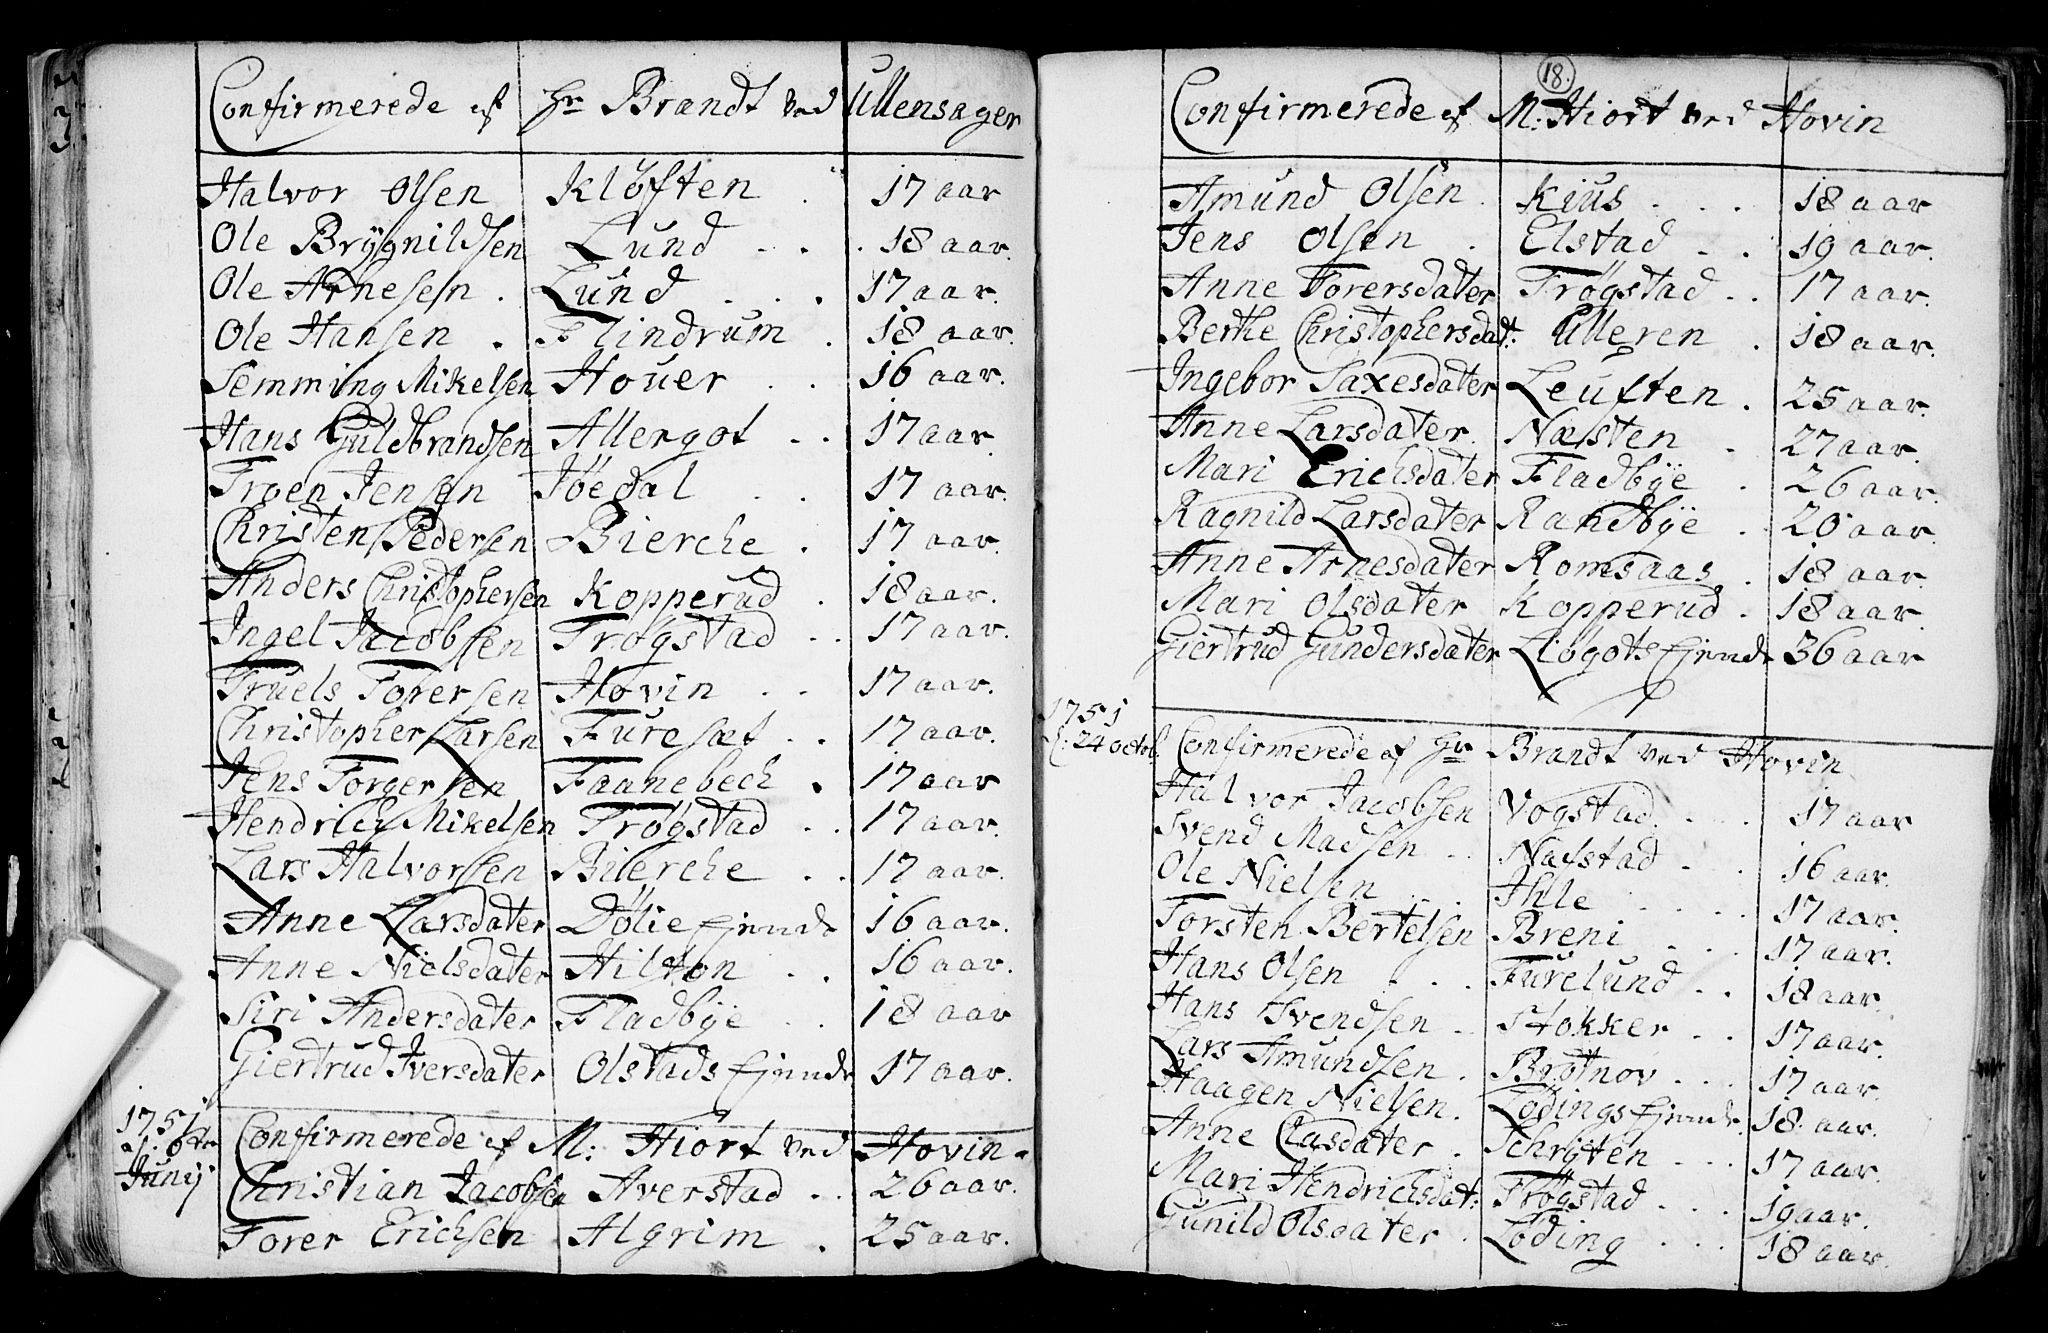 Confirmerede af Hr Brandt ved Ullensager
Halvor Olsen Kløften . 17 aar
Ole Brÿgnildsen Lund . . . 18 aar.
Ole Arnesen . Lund . . . 17 aar.
Ole Hansen . Flindrum . 18 aar.
Semming Mikelsen Houer . . 16 aar.
Hans Guldbrandsen Allergot . . 17 aar.
Troen Jensen Jöedal . . 17 aar.
Christen Pedersen Bierche . 17 aar.
Anders Christophersen Kopperud . 18 aar.
Ingel Jacobsen Trøgstad . . 17 aar.
Truels Torersen Hovin . . 17 aar.
Christopher Larsen Furesæt . . 17 aar.
Jens Torgersen Faanebech . 17 aar
Hendrich Mikelsen Trøgstad . . 17 aar.
Lars Halvorsen Bierche . . 17 aar.
Anne Larsdater Dölie Ejende 16 aar.
Anne Nielsdater Hilton . . 16 aar.
Siri Andersdater Fladbÿe . . 18 aar
Giertrud Iversdater Olstads Ejende 17 aar.
1751
Junij
Confirmerede af M: Hiort ved Hovin.
Christian Jacobsen Averstad . . 26 aar.
Torer Erichsen Algrim . 25 aar.
18.
Confirmerede af M: Hiort ved Hovin
Amund Olsen . Kius . . . 18 aar
Jens Olsen . Elstad . . 19 aar.
Anne Torersdater Trøgstad . . 17 aar.
Berthe Christophersdat: Ulleren . 18 aar.
Ingebor Saxesdater Leuften . 25 aar.
Anne Larsdater. Næsten . 27 aar.
Mari Erichsdater Fladbÿe . 26 aar.
Ragnild Larsdater Randbÿe . 20 aar.
Anne Arnesdater Romsaas . 18 aar.
Mari Olsdater Kopperud . 18 aar.
Giertrud Gundersdater Liøgots Ejende 36 aar
1751
d. 24 octob.
Confirmerede af Hr Brandt ved Hovin
Halvor Jacobsen Vogstad . . . 17 aar
Svend Madsen . . Nafstad . . 16 aar.
Ole Nielsen . . Ihle . . . . 17 aar.
Torsten Bertelsen Breni . . . 17 aar.
Hans Olsen . . . Furelund . . 18 aar.
Hans Svendsen . Stokker . . 17 aar.
Lars Amundsen . Brotnov . . . 17 aar.
Haagen Nielsen. Lödings Ejende. 18 aar.
Anne Clasdater . Schrÿten . . . 17 aar.
Mari Hendrichsdat: Trøgstad . . . 19 aar.
Gunild Olsdater . Löding . . . 18 aar.